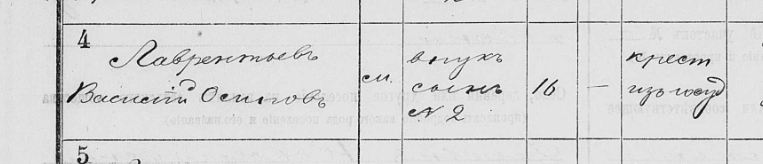 4
Лаврентьевъ
Василій Осиповъ
см.
внукъ
сынъ
№ 2
16
—
крест
изъ
5